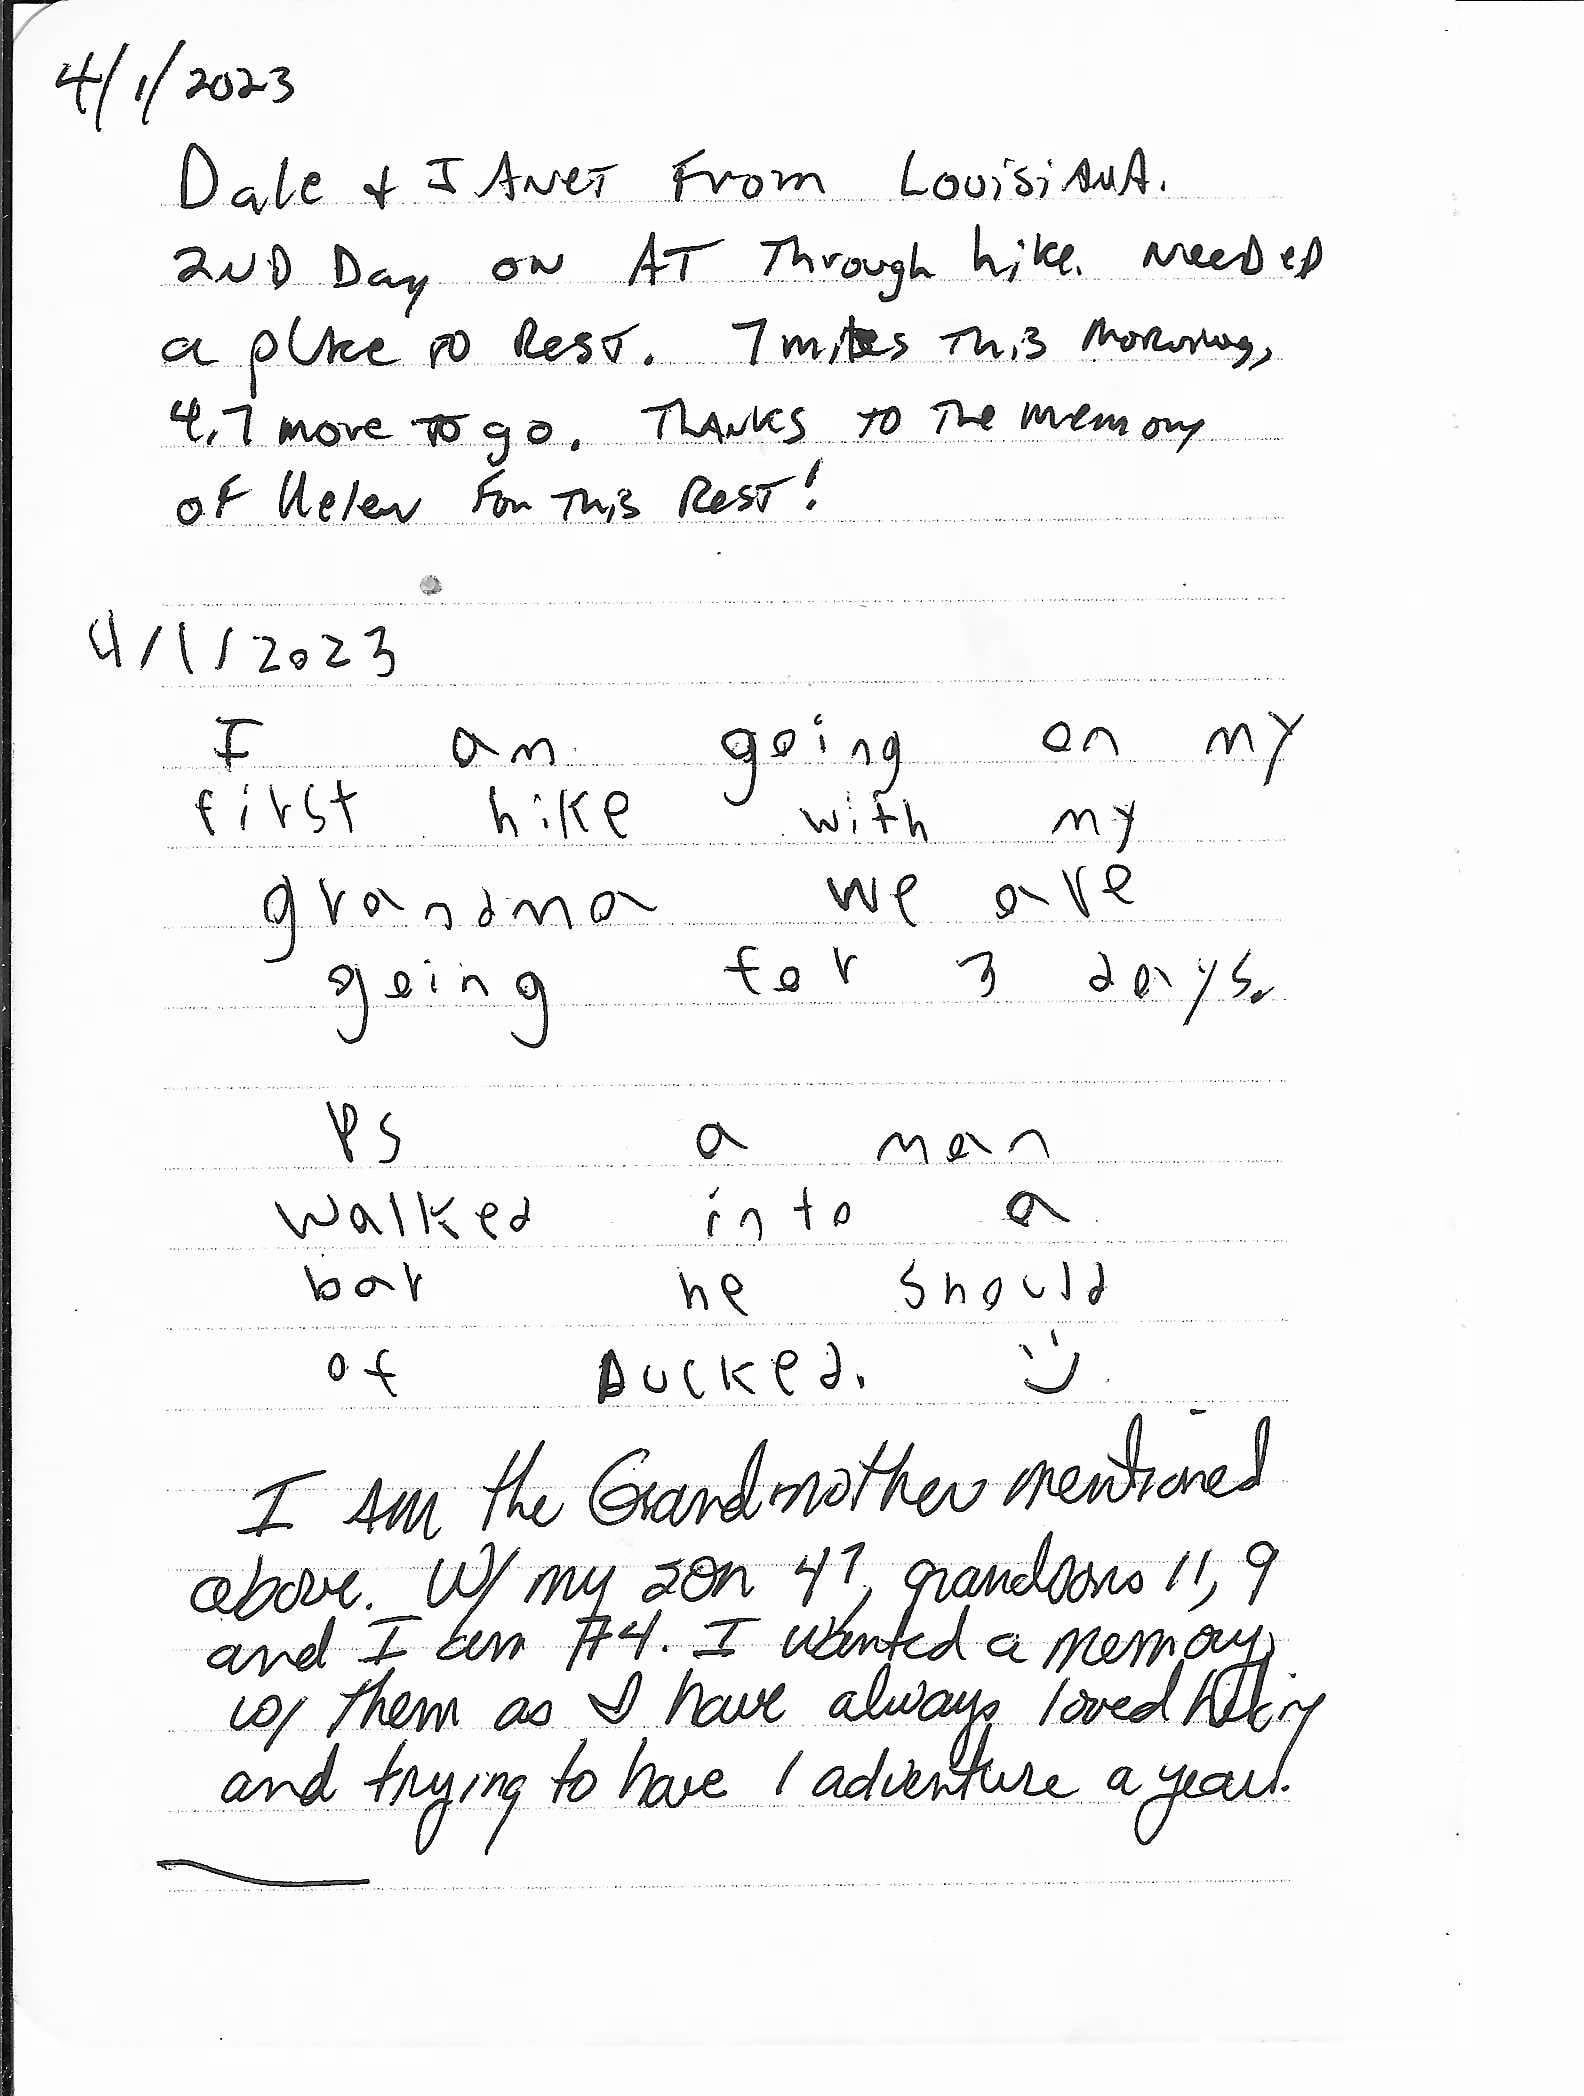 4/1/2023
Dale & JANET From LouisiANA.
2ND Day ON AT Through hike. NeeDeD
a place to Rest. 7 miles This Morning,
4.7 more to go. THANKS TO The memory
of Helen For This Rest!
4/1/2023
I am going on my
first hike with my
grandma we are
going for 3 days.
PS a man
walked into a
bar he should
of Ducked. :)
I AM the Grandmother mentioned
above. W/ my son 47, grandsons 11, 9
and I am #4. I wanted a memory
w/ them as I have always loved hiking
and trying to have 1 adventure a year.